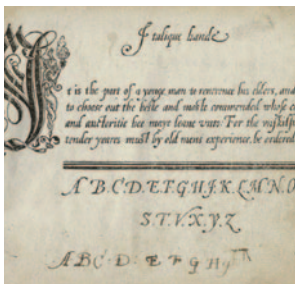 Italique hande
It is the part of a yonge man to reuerence his elders, and
to choose out the beste and moste commended whose co
and auctoritie hee maye leane vnto: For the vnskilfu
tender yeares must by old mens experience, be ordered
A B.C.D.E.F.G H.J.K.L.M.N.O
S.T.V.X.y.Z
A B C D E F G H